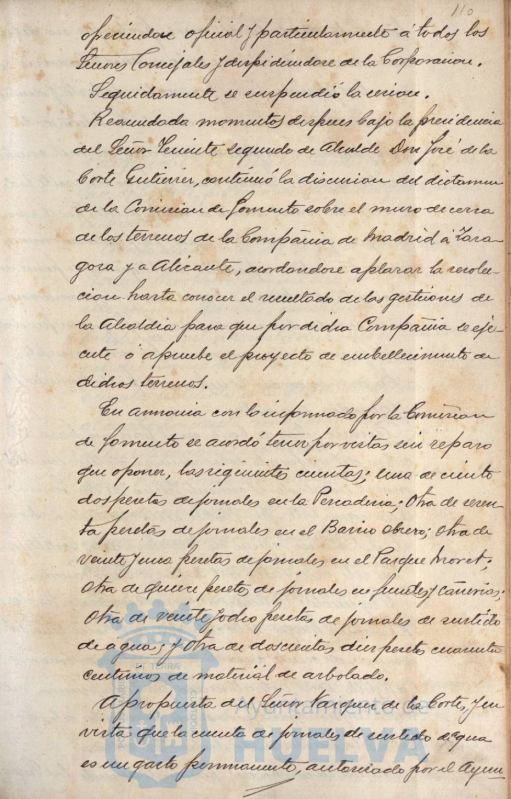 110
ofreciendose oficial y particularmente á todos los
Señores Concejales y despidiéndose de la Corporacion.
Seguidamente se suspendió la sesion.
Reanudada momentos despues bajo la presidencia
del Señor Teniente segundo de Alcalde Don José de la
Corte Gutierrez, continuó la discusion del dictamen
de la Comision de Fomento sobre el muro de cerca
de los terrenos de la Compañia de Madrid á Zara
goza y a Alicante, acordandose aplazar la resolu
cion hasta conocer el resultado de las gestiones de
la Alcaldia para que por dicha Compañia se eje
cute ó apruebe el proyecto de embellecimiento de
dichos terrenos.
En armonia con lo informado por la Comision
de Fomento se acordó tener por vistas sin reparo
que oponer, las siguientes cuentas; una de ciento
dos pesetas de jornales en la Pescaderia; otra de seten
ta pesetas de jornales en el Barrio Obrero; otra de
veinte y una pesetas de jornales en el Parque Moret;
otra de quince pesetas de jornales en fuentes y cañerias;
otra de veinte y ocho pesetas de jornales de surtido
de agua; y otra de doscientas diez pesetas cuarenta
centimos de material de arbolado.
A propuesta del Señor Vazquez de la Corte, y en
vista que la cuenta de jornales de surtido de agua
es un gasto permanente, autorizado por el Ayun
Ayuntamiento de
HUELVA